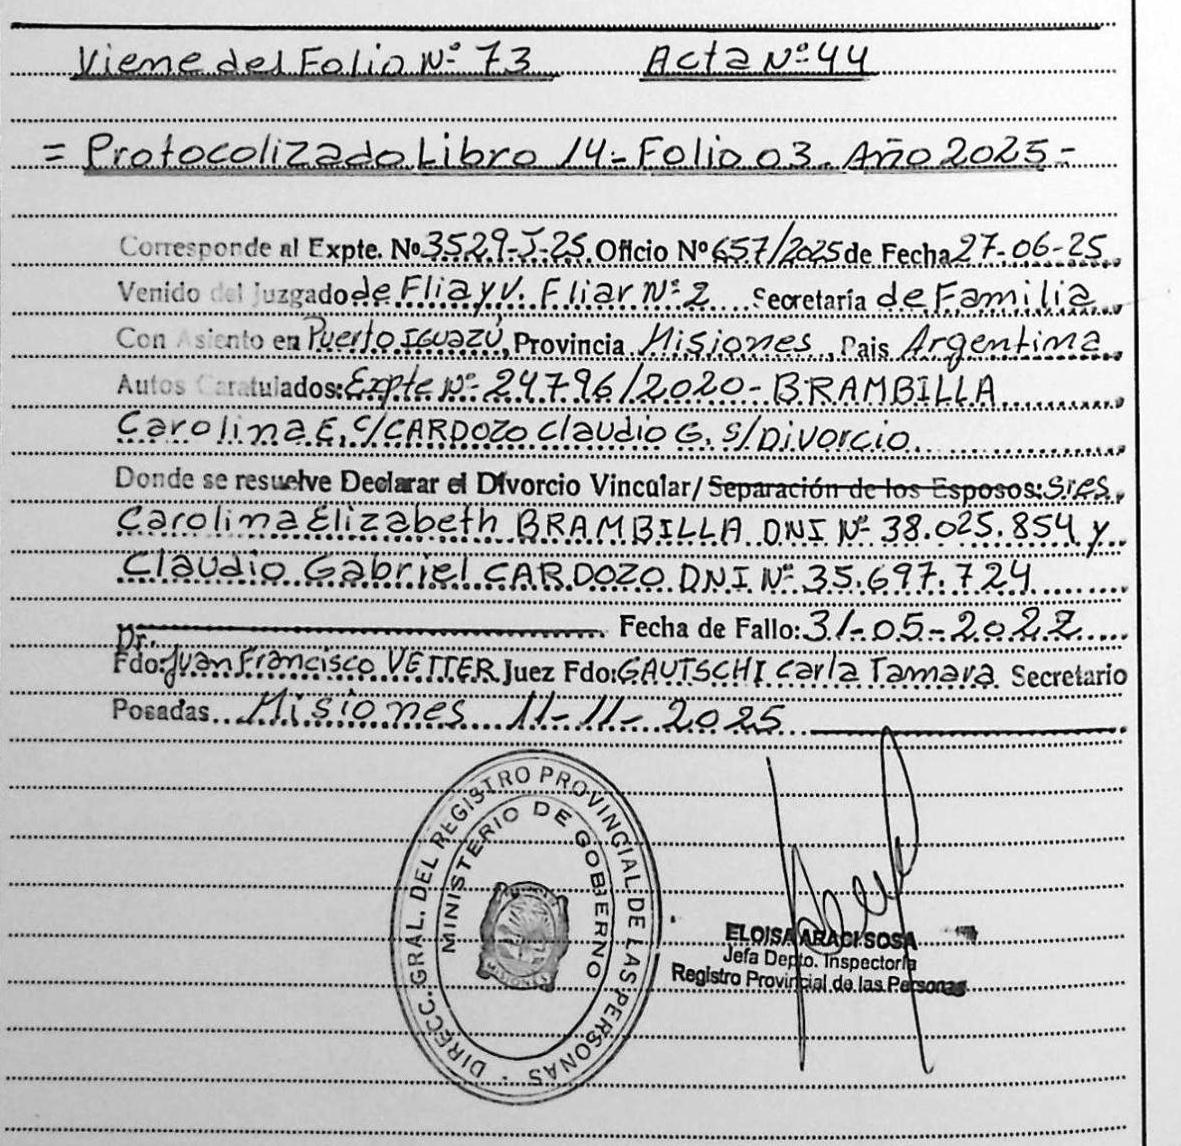 Viene del Folio Nº 73 Acta Nº 44
= Protocolizado Libro 14 - Folio 03. Año 2025 -
Corresponde al Expte. Nº 3529-J-25. Oficio Nº 657/2025 de Fecha 27-06-25
Venido del Juzgado de Flia y V. Fliar Nº 2 Secretaría de Familia
Con Asiento en Puerto Iguazú, Provincia Misiones, Pais Argentina
Autos Caratulados: Expte Nº 24796/2020 - BRAMBILLA
Carolina E, C/CARDOZO Claudio G. S/Divorcio
Donde se resuelve Declarar el Divorcio Vincular/ Separación de los Esposos: Sres
Carolina Elizabeth BRAMBILLA DNI Nº 38.025.854 y
Claudio Gabriel CARDOZO DNI Nº 35.697.724
Fecha de Fallo: 31-05-2022
Dr.
Fdo: Juan Francisco VETTER Juez Fdo: GAUTSCHI Carla Tamara Secretario
Posadas Misiones 11-11-2025
DIRECC. GRAL. DEL REGISTRO PROVINCIAL DE LAS PERSONAS
MINISTERIO DE GOBIERNO
MISIONES
ELOISA ARACI SOSA
Jefa Depto. Inspectoría
Registro Provincial de las Personas